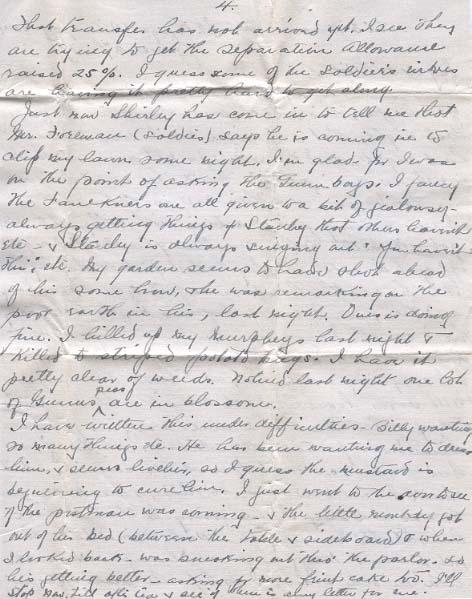 4.
That transfer has not arrived yet. I see they
are trying to get the separation allowance
raised 25%. I guess some of the soldier's wives
are having it pretty hard to get along.
Just now Shirley has come in to tell me that
Mr. Foreman (soldier) says he is coming in to
clip my lawn some night. I'm glad for I was
on the point of asking the Gunn boys. I fancy
the Faulkners are all given to a bit of jealousy -
always getting things & Stanley that others haven't
etc - & Stanley is always singing out "You haven't
this", etc. My garden seems to have shot ahead
of his some how, & he was remarking on the
poor earth in his, last night. Ours is doing
fine. I hilled up my Murpheys last night &
killed 2 striped potato bugs. I have it
pretty clear of weeds. Noticed last night one lot
of Gunns peas are in blossom.
I have written this under difficulties - Billy wanting
so many things etc. He has been wanting me to dress
him, & seems livelier, so I guess the mustard is
beginning to cure him. I just went to the door to see
if the postman was coming - & the little monkey got
out of his bed (between the table & sideboard) & when
I looked back - was sneaking out thro' the parlor. So
he's getting better - asking for more fruit cake too. I'll
stop now, till after tea & see if there is any letter for me.